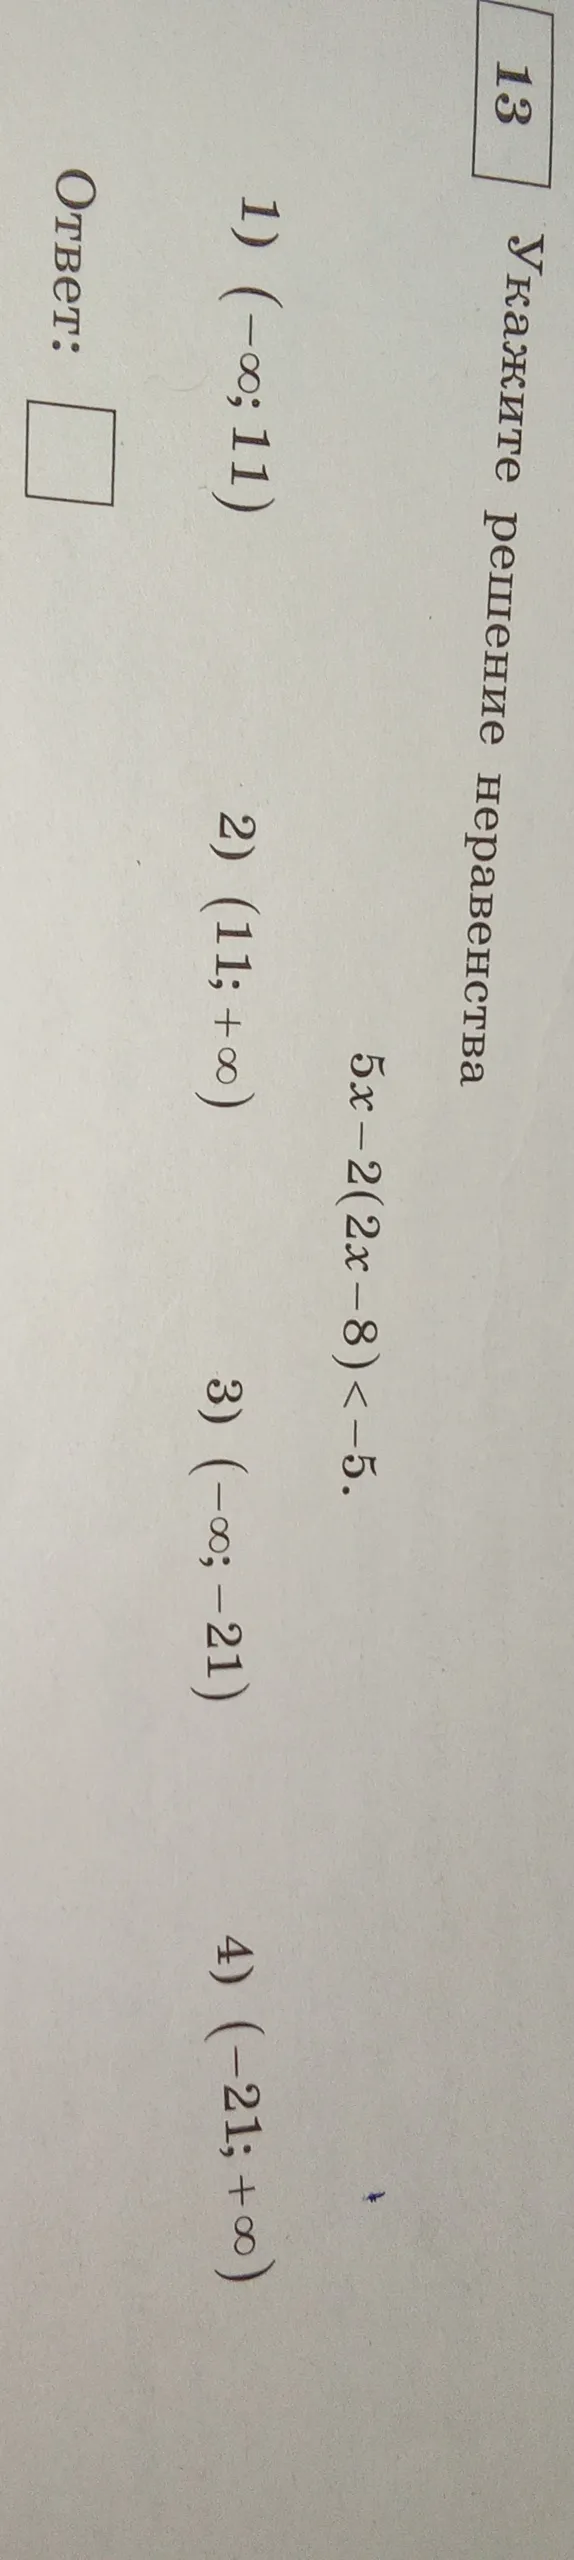 13 Укажите решение неравенства
5x–2(2x–8)<–5.
1) (–∞; 11) 2) (11; +∞) 3) (–∞; –21) 4) (–21; +∞)
Ответ: